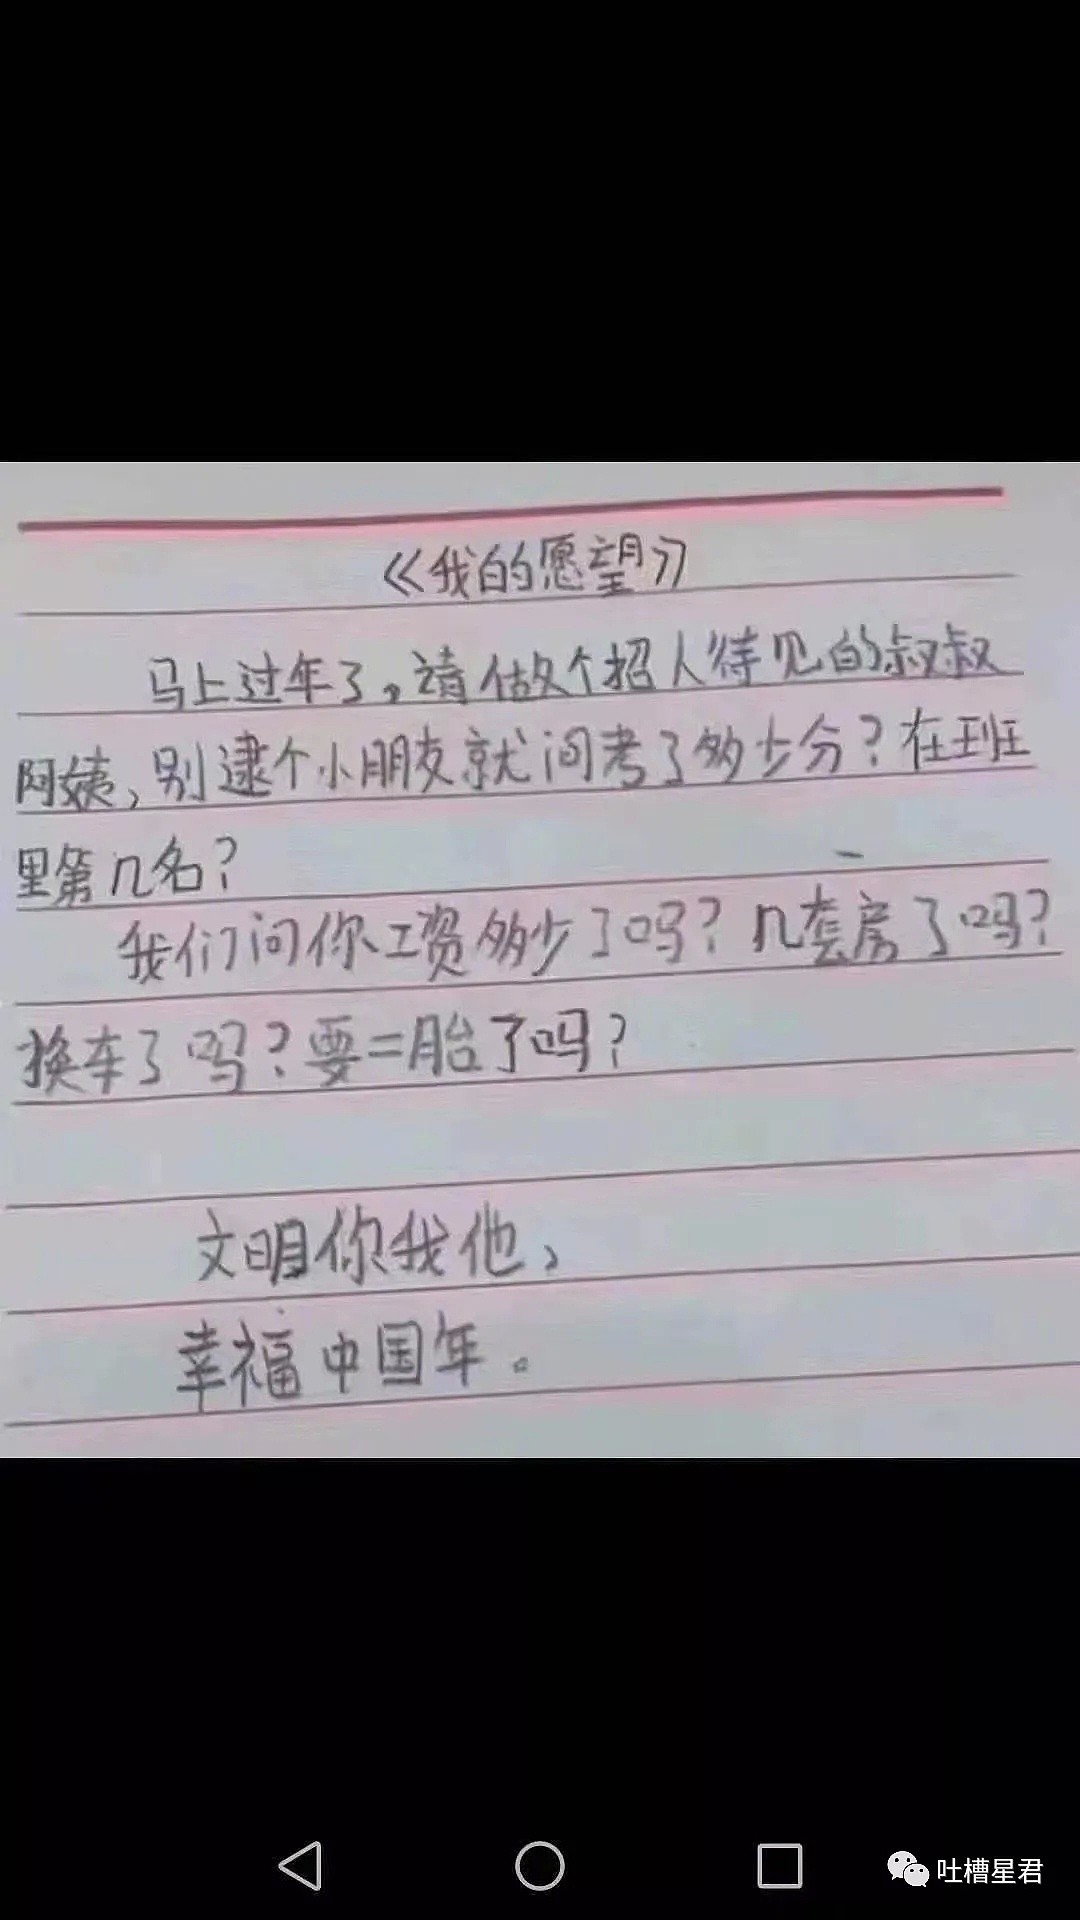 《我的愿望》
马上过年了，请做个招人待见的叔叔
阿姨，别逮个小朋友就问考了多少分？在班
里第几名？
我们问你工资多少了吗？几套房了吗？
换车了吗？要二胎了吗？
文明你我他，
幸福中国年。
吐槽星君